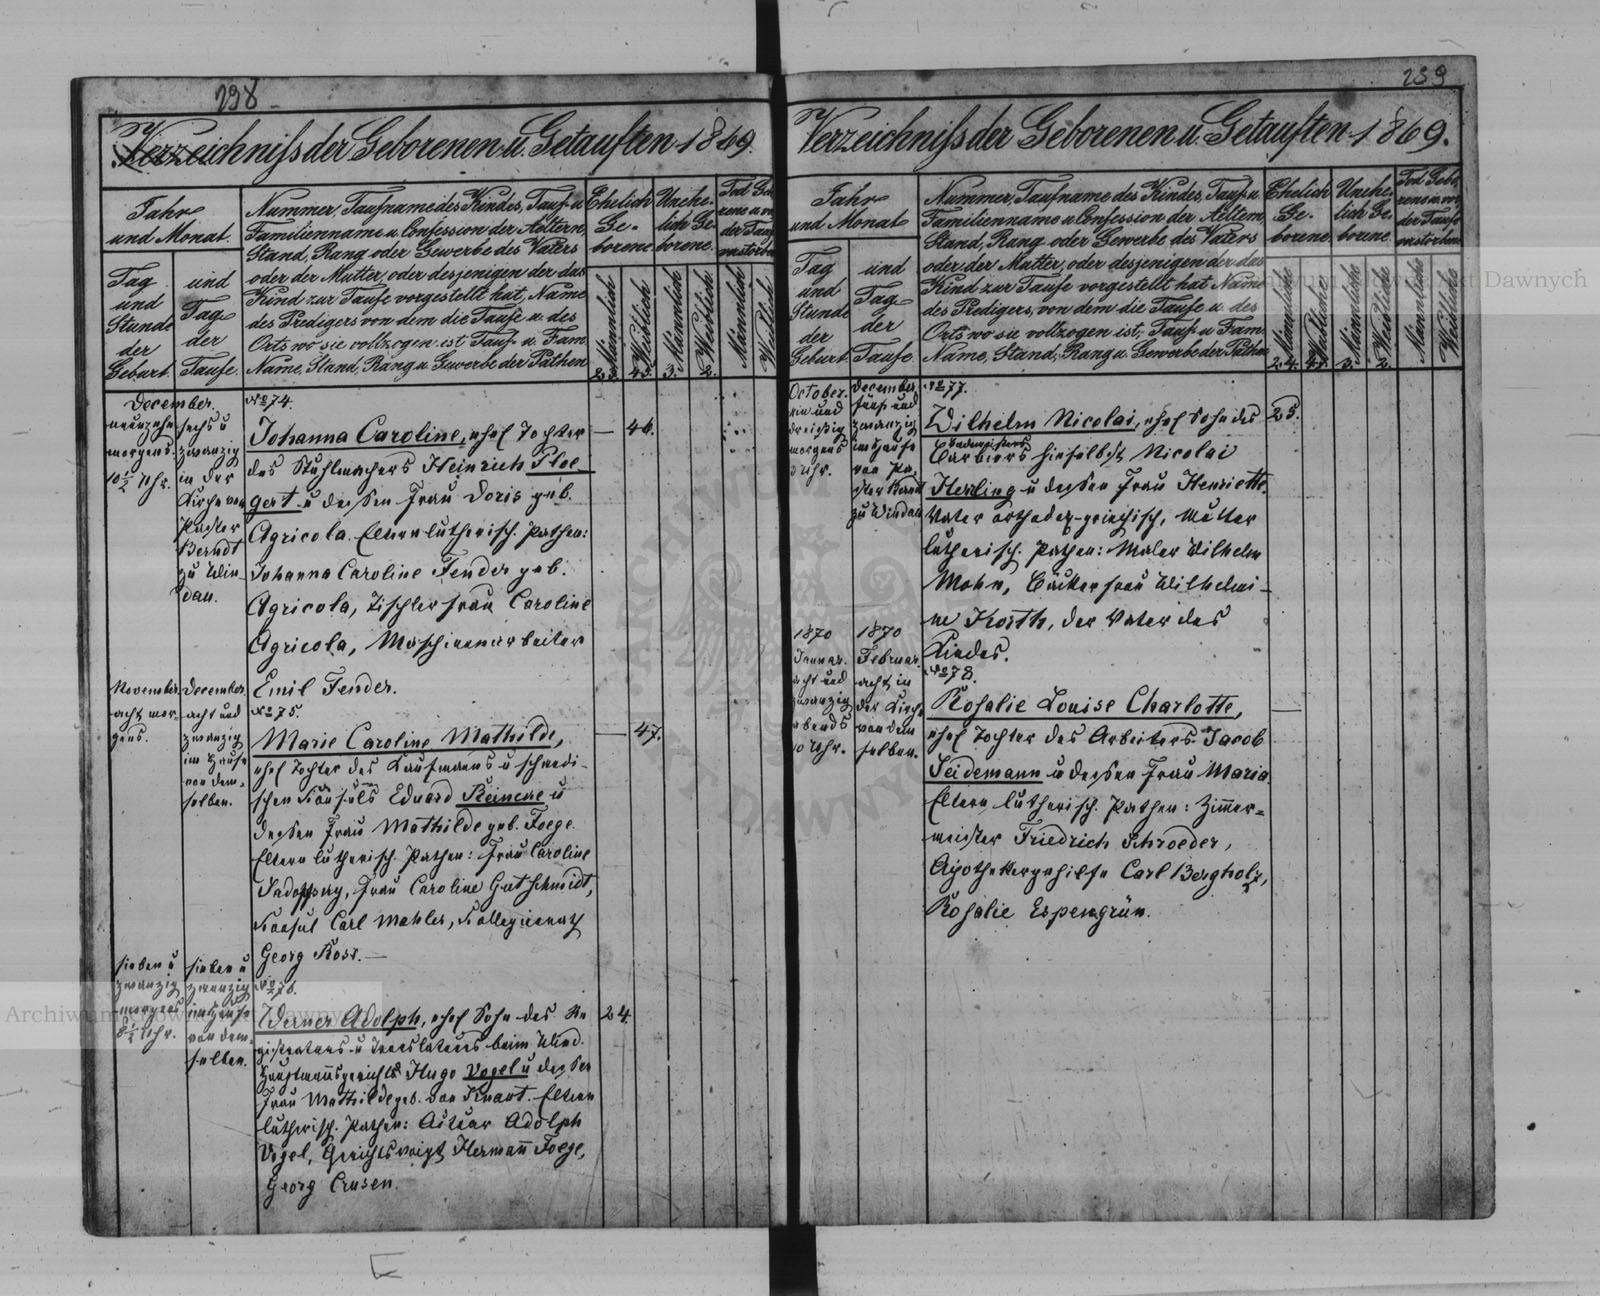 298
Verzeichniss der Geborenen u. Getauften 1869.
Jahr
und Monat.
Tag
und
Stunde
der
Geburt.
und
Tag
der
Taufe.
Nummer, Taufname des Kindes, Tauf- u
Familienname u Confession der Aeltern,
Stand, Rang oder Gewerbe des Vaters
oder der Mutter, oder desjenigen der das
Kind zur Taufe vorgestellt hat, Name
des Predigers von dem die Taufe u. des
Orts wo sie vollzogen ist, Tauf- u. Fam.
Name, Stand, Rang u. Gewerbe der Pathen
Ehelich
Ge-
borene
Unehe-
lich Ge-
borene.
Männlich
Weiblich
Männlich
Weiblich
Männlich
Weiblich
23. 45. 3. 2.
December.
neunzehn
morgens
10 1/2 Uhr.
sechs u
zwanzig
in der
Kirche von
Pastor
Berndt
zu Win-
dau.
No 74.
Johanna Caroline, ehel Tochter
des Stuhlmachers Heinrich Ploe-
gert u dessen Frau Doris geb.
Agricola. Eltern lutherisch. Pathen:
Johanna Caroline Fender geb.
Agricola, Tischlerfrau Caroline
Agricola, Maschinenarbeiter
Emil Fender.
— 46.
November
acht mor-
gens.
December
acht und
zwanzig
im Hause
von dem-
selben.
No 75.
Marie Caroline Mathilde,
ehel Tochter des Kaufmanns u schwedi-
schen Konsuls Eduard Reincke u
dessen Frau Mathilde geb. Foege.
Eltern lutherisch. Pathen: Frau Caroline
Frau Caroline Gutschmidt,
Konsul Carl Mahler, Kollegienrath
Georg Ross. —
— 47.
sieben u
zwanzig
morgens
8 1/2 Uhr.
sieben u
zwanzig
im Hause
von dem-
selben.
No 76.
Werner Adolph, ehel Sohn des Re
gistrators u Translateurs beim Wind.
Hauptmannsgerichts Hugo Vogel u dessen
Frau Mathilde geb. von Knaut. Eltern
lutherisch. Pathen: Actuar Adolph
Vogel, Gerichtsvoigt Hermann Foege,
Georg Crusen.
24.
299
Verzeichniss der Geborenen u. Getauften 1869.
Jahr
und Monat
Tag
und
Stunde
der
Geburt.
und
Tag
der
Taufe.
Nummer, Taufname des Kindes, Tauf- u
Familienname u Confession der Aeltern,
Stand, Rang oder Gewerbe des Vaters
oder der Mutter, oder desjenigen der das
Kind zur Taufe vorgestellt hat, Name
des Predigers, von dem die Taufe u. des
Orts wo sie vollzogen ist, Tauf- u Fam.
Name, Stand, Rang u. Gewerbe der Pathen
Ehelich
Ge-
borene.
Unehe-
lich Ge-
borene.
Männliche
Weibliche
Männliche
Weibliche
Männliche
Weibliche
24. 47. 3. 2.
October.
ein und
dreissig
morgens
3 Uhr.
December
fünf und
zwanzig
im Hause
von Pa-
stor Berndt
zu Windau
No 77.
Wilhelm Nicolai, ehel Sohn des
Barbiers hieselbst Nicolai
Herling u dessen Frau Henriette.
Vater orthodox-griechisch, Mutter
lutherisch. Pathen: Maler Wilhelm
Mohn, Bäckerfrau Wilhelmi-
ne Korth, der Vater des
Kindes.
25.
1870
Januar.
acht und
zwanzig
abends
10 Uhr.
1870
Februar.
acht in
der Kirche
von dem
selben.
No 78.
Rosalie Louise Charlotte,
ehel Tochter des Arbeiters Jacob
Seidemann u dessen Frau Maria
Eltern lutherisch. Pathen: Zimmer-
meister Friedrich Schroeder,
Apothekergehilfe Carl Bergholz,
Rosalie Espengrün.
—